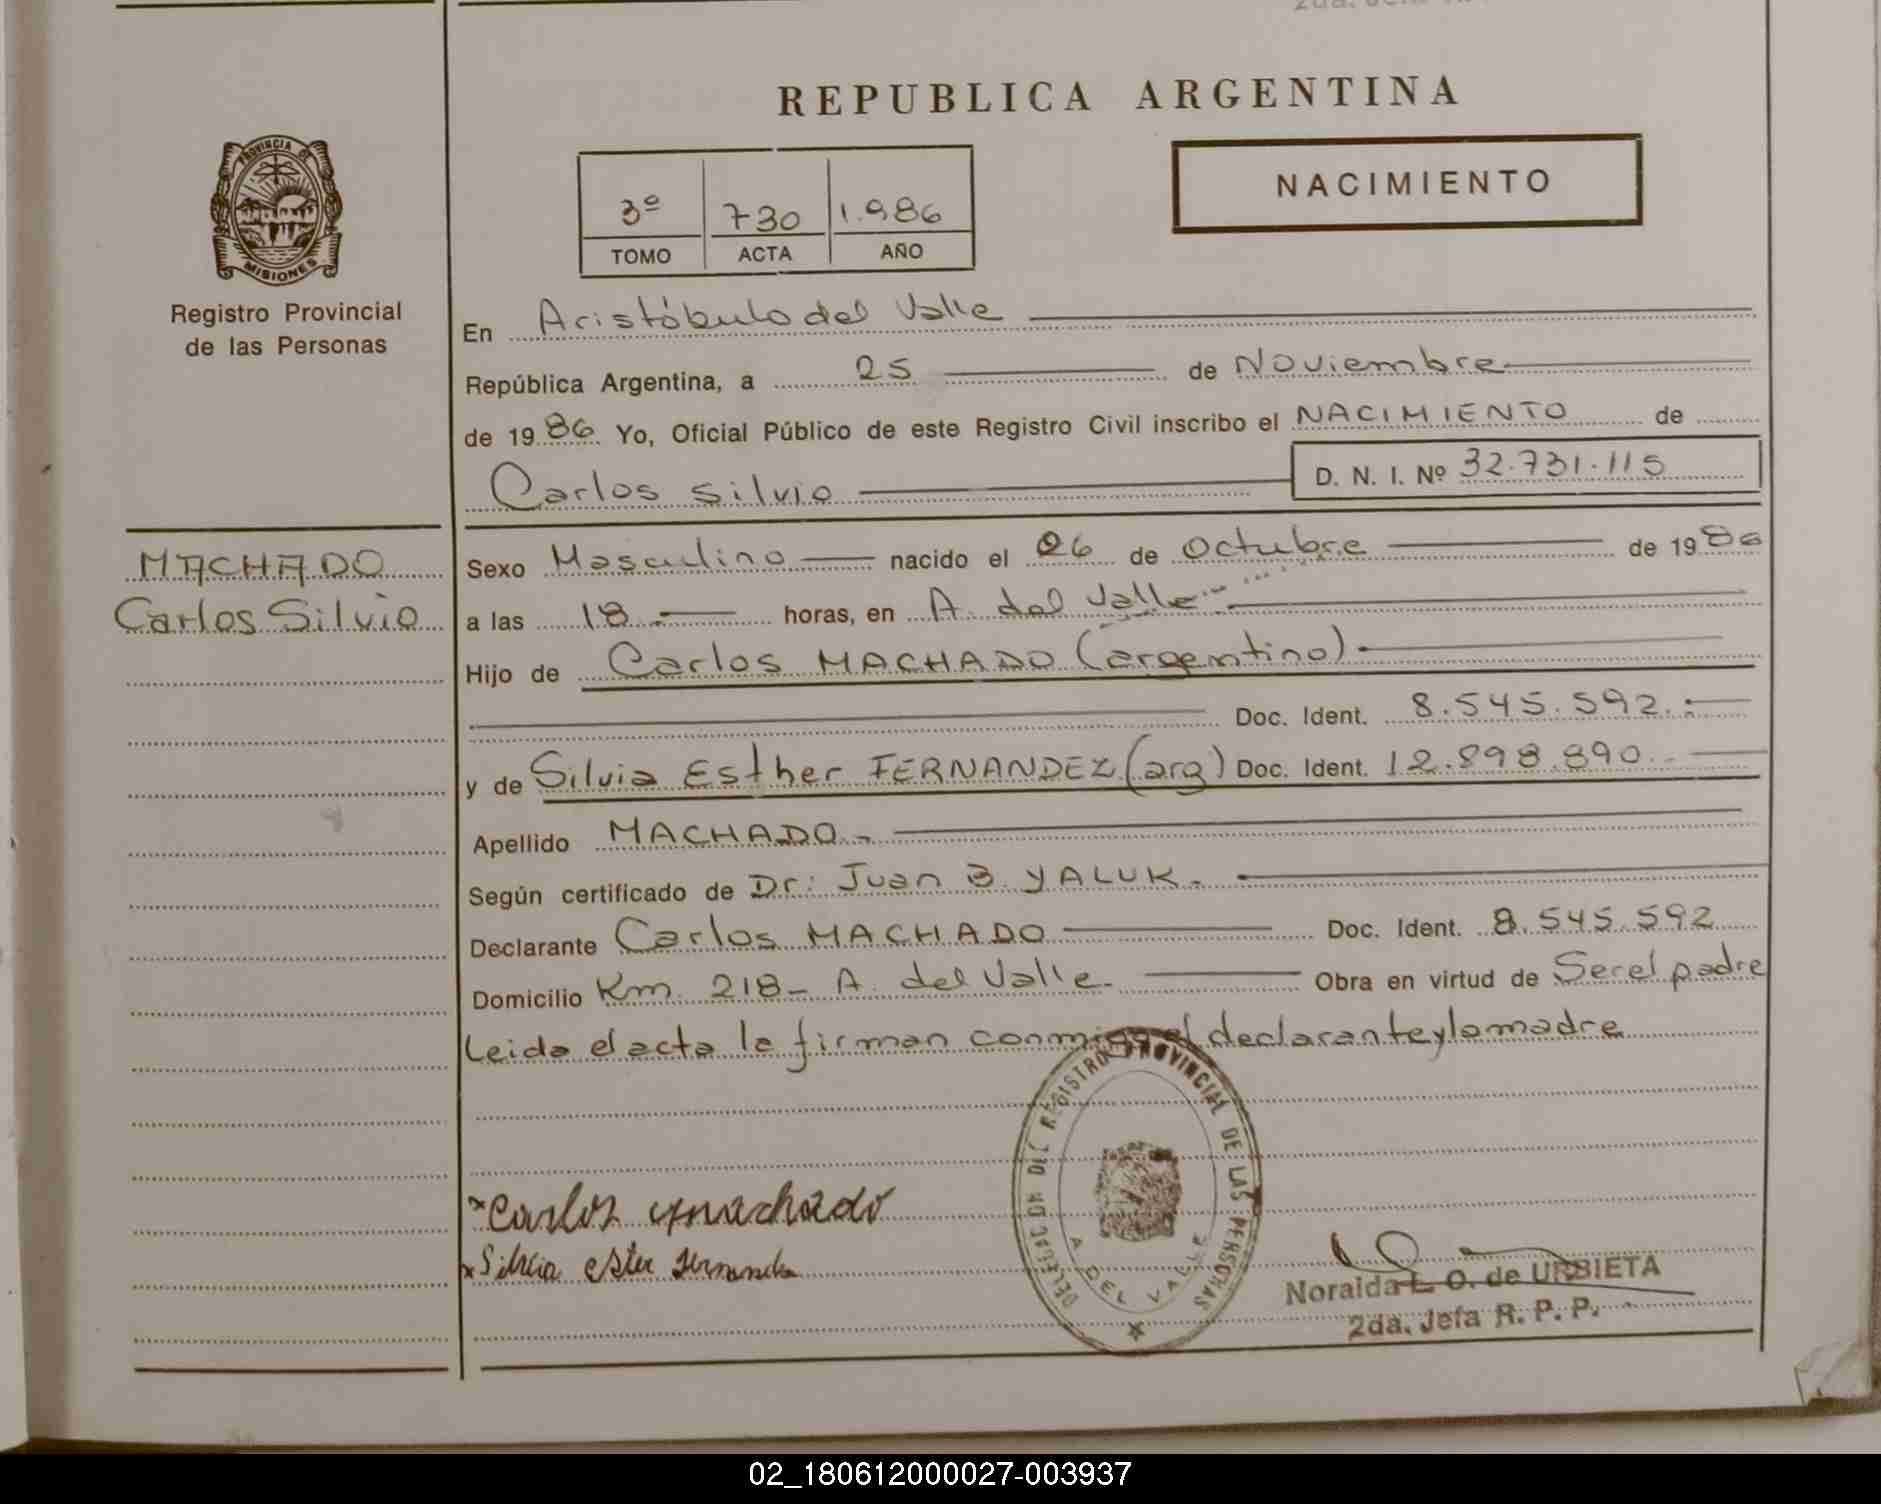 REPUBLICA ARGENTINA
PROVINCIA DE
MISIONES
Registro Provincial
de las Personas
3º 730 1.986
TOMO ACTA AÑO
NACIMIENTO
En Aristóbulo del Valle
República Argentina, a 25 de Noviembre
de 1986 Yo, Oficial Público de este Registro Civil inscribo el NACIMIENTO de
Carlos Silvio D. N. I. Nº 32.731.115
MACHADO
Carlos Silvio
Sexo Masculino nacido el 26 de Octubre de 1986
a las 18 horas, en A. del Valle
Hijo de Carlos MACHADO (argentino)
Doc. Ident. 8.545.592.
y de Silvia Esther FERNANDEZ (arg) Doc. Ident. 12.898.890
Apellido MACHADO.
Según certificado de Dr: Juan B YALUK.
Declarante Carlos MACHADO Doc. Ident. 8.545.592
Domicilio Km 218- A. del Valle. Obra en virtud de Ser el padre
Leida el acta la firman conmigo el declarante y la madre
DELEGACION DEL REGISTRO PROVINCIAL DE LAS PERSONAS
A. DEL VALLE
x Carlos Machado
x Silvia ester Fernandez
Noraida L. O. de URBIETA
2da. Jefa R. P. P.
02_180612000027-003937